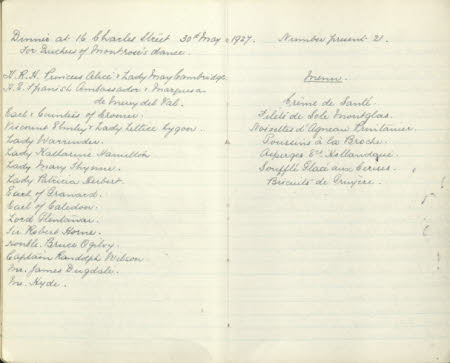 Dinner at 16 Charles Street 30th May 1927. Number present 21.
for Duchess of Montrose's dance.
H.R.H. Princess Alice & Lady May Cambridge.
H.E. Spanish Ambassador & Marquesa
de Merry del Val.
Earl & Countess of Cromer.
Viscount Elmley & Lady Lettice Lygon.
Lady Warrender.
Lady Katharine Hamilton
Lady Mary Thynne.
Lady Patricia Herbert.
Earl of Granard.
Earl of Caledon.
Lord Glentanar.
Sir Robert Horne.
Honble. Bruce Ogilvy.
Captain Randolph Wilson.
Mr. James Dugdale.
Mr. Hyde.
Menu.
Crème de Santé.
Filets de Sole Montglas.
Noisettes d'Agneau Printanier.
Poussins à la Broche.
Asperges Sce Hollandaise.
Soufflé Glacé aux Cerises.
Biscuits de Gruyère.